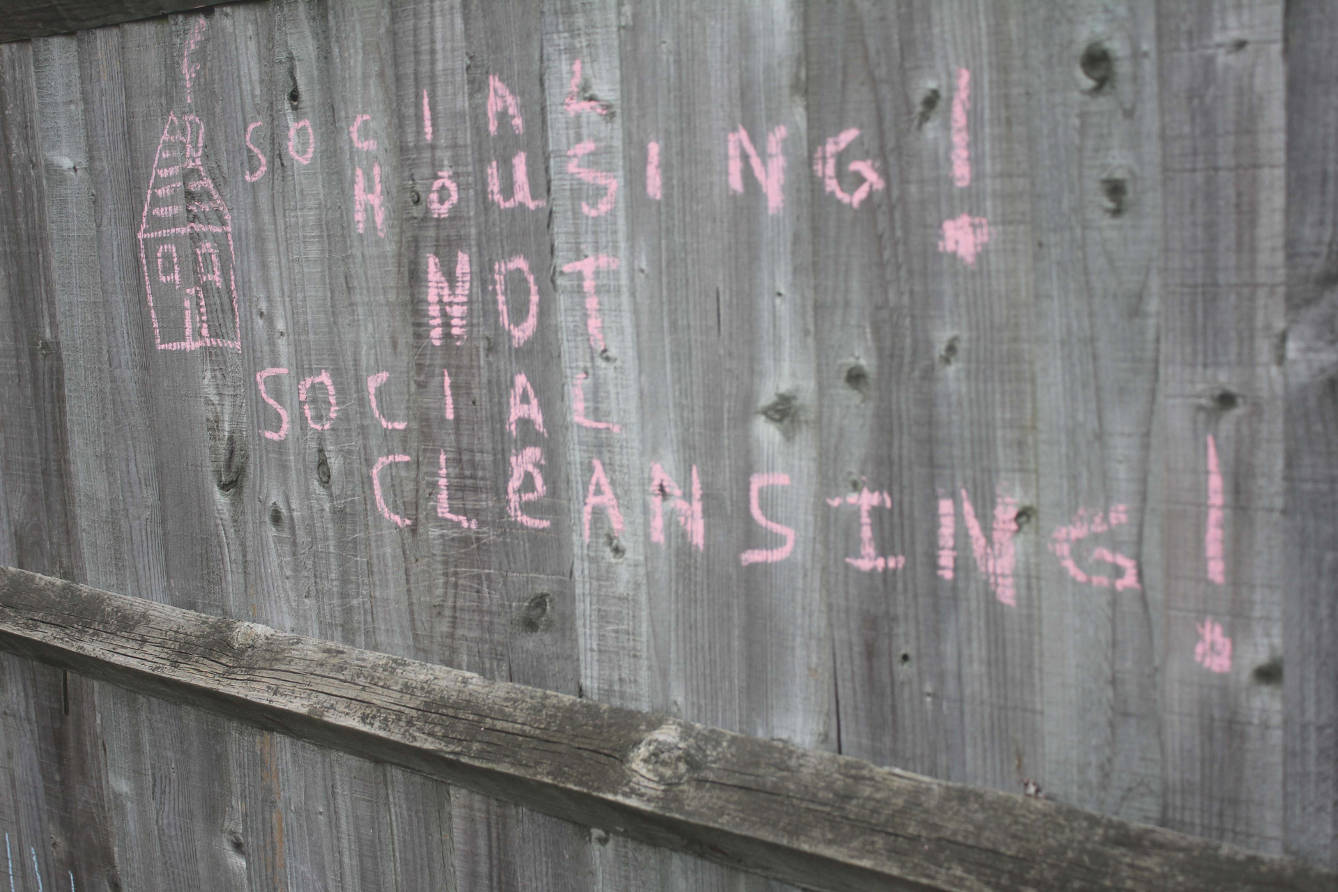 SOCIAL
HOUSING!
NOT
SOCIAL
CLEANSING!